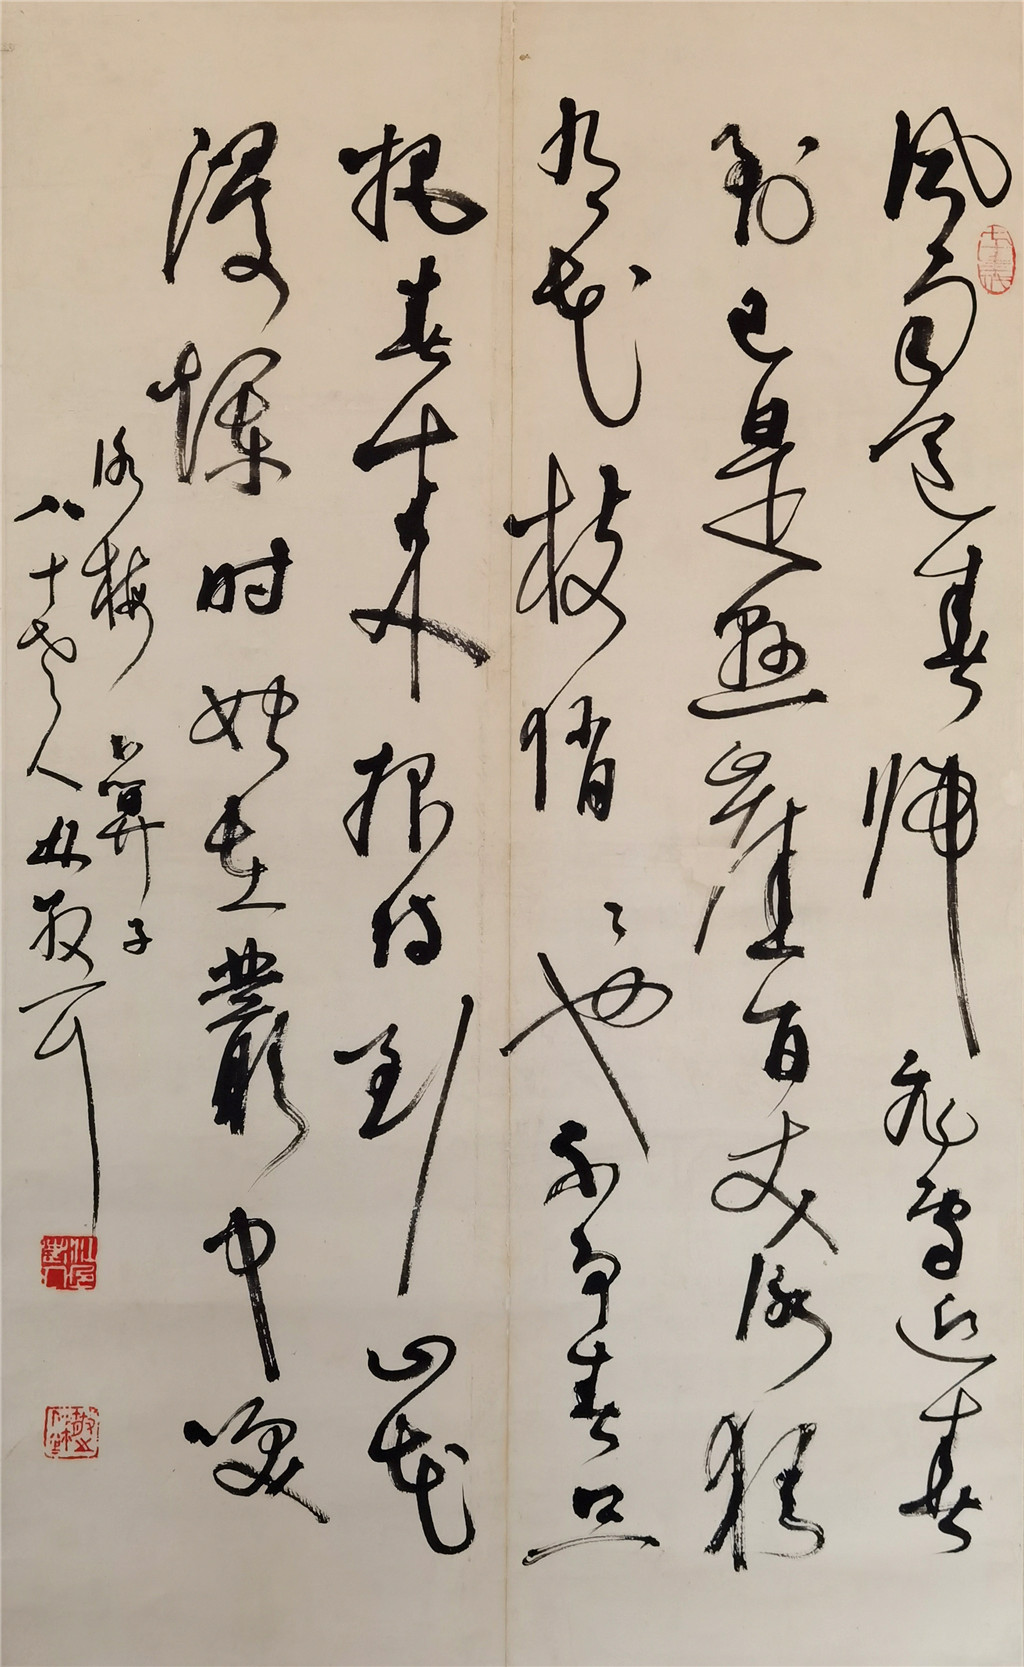 风雨送春归飛雪迎春
到已是懸崖百丈冰猶
有花枝俏々也不争春只
把春来报待到山花
漫爛时她在叢中笑
咏梅 卜算子
八十老人林